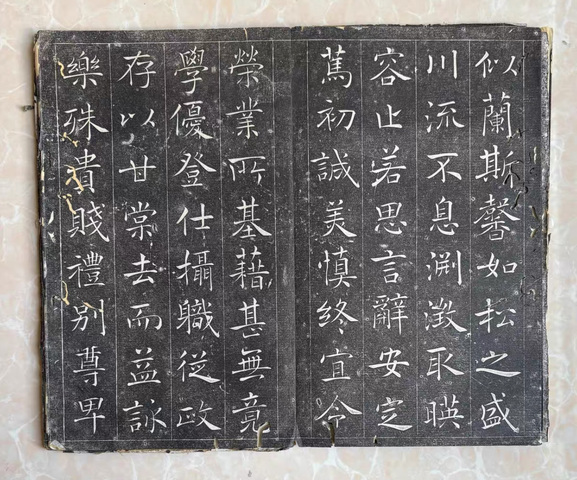 似蘭斯馨如松之盛
川流不息淵澂取暎
容止若思言辭安定
萬初誠美慎終宜令
榮業所基藉甚無竟
學優登仕攝職從政
存以甘棠去而益詠
樂殊貴賤禮別尊卑